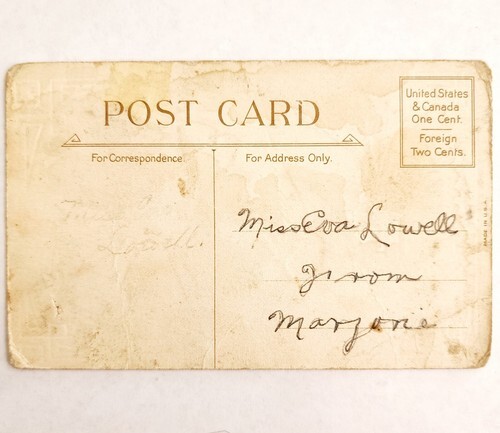 POST CARD
United States
& Canada
One Cent.
Foreign
Two Cents.
For Correspondence.
For Address Only.
Lowell.
Miss Eva Lowell
From
Marjorie
MADE IN U.S.A.